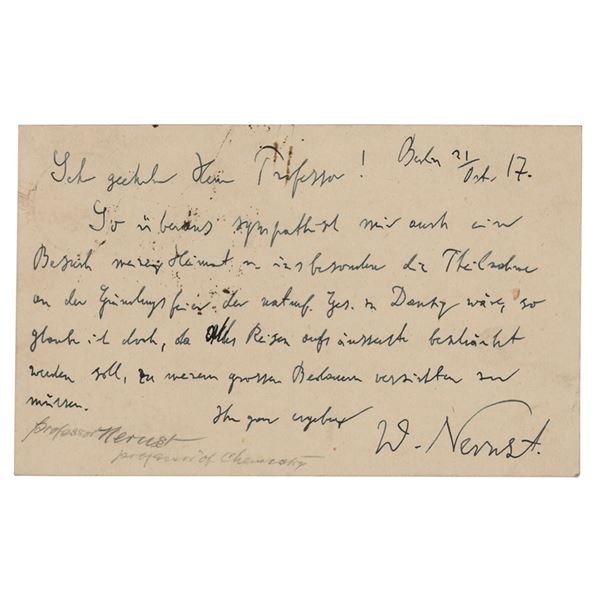 Berlin 21/Okt. 17.
Sehr geehrter Herr Professor!
So überaus sympathisch mir auch ein
Besuch meiner Heimat u. insbesondere die Theilnahme
an der Gründungsfeier der naturf. Ges. in Danzig wäre, so
glaube ich doch, da alles Reisen aufs äusserste beschränkt
werden soll, zu meinem grossen Bedauern verzichten zu
müssen.
Ihr ganz ergebener
W. Nernst.
professor Nernst
professor of Chemistry